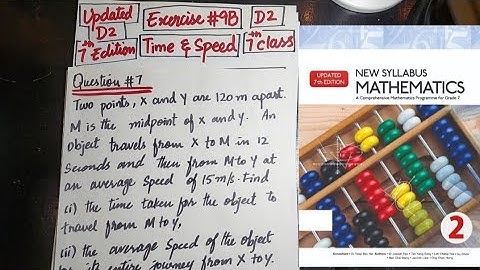 Updated
D2
7th Edition
Exercise #9B
D2
Time & Speed
7th class
Question #7
Two points, X and Y are 120 m apart.
M is the midpoint of X and Y. An
object travels from X to M in 12
Seconds and then from M to Y at
an average Speed of 15 m/s. Find
(i) the time taken for the object to
travel from M to Y,
(ii) the average Speed of the object
entire journey from X to Y.
UPDATED
7th EDITION
NEW SYLLABUS
MATHEMATICS
A Comprehensive Mathematics Programme for Grade 7
2